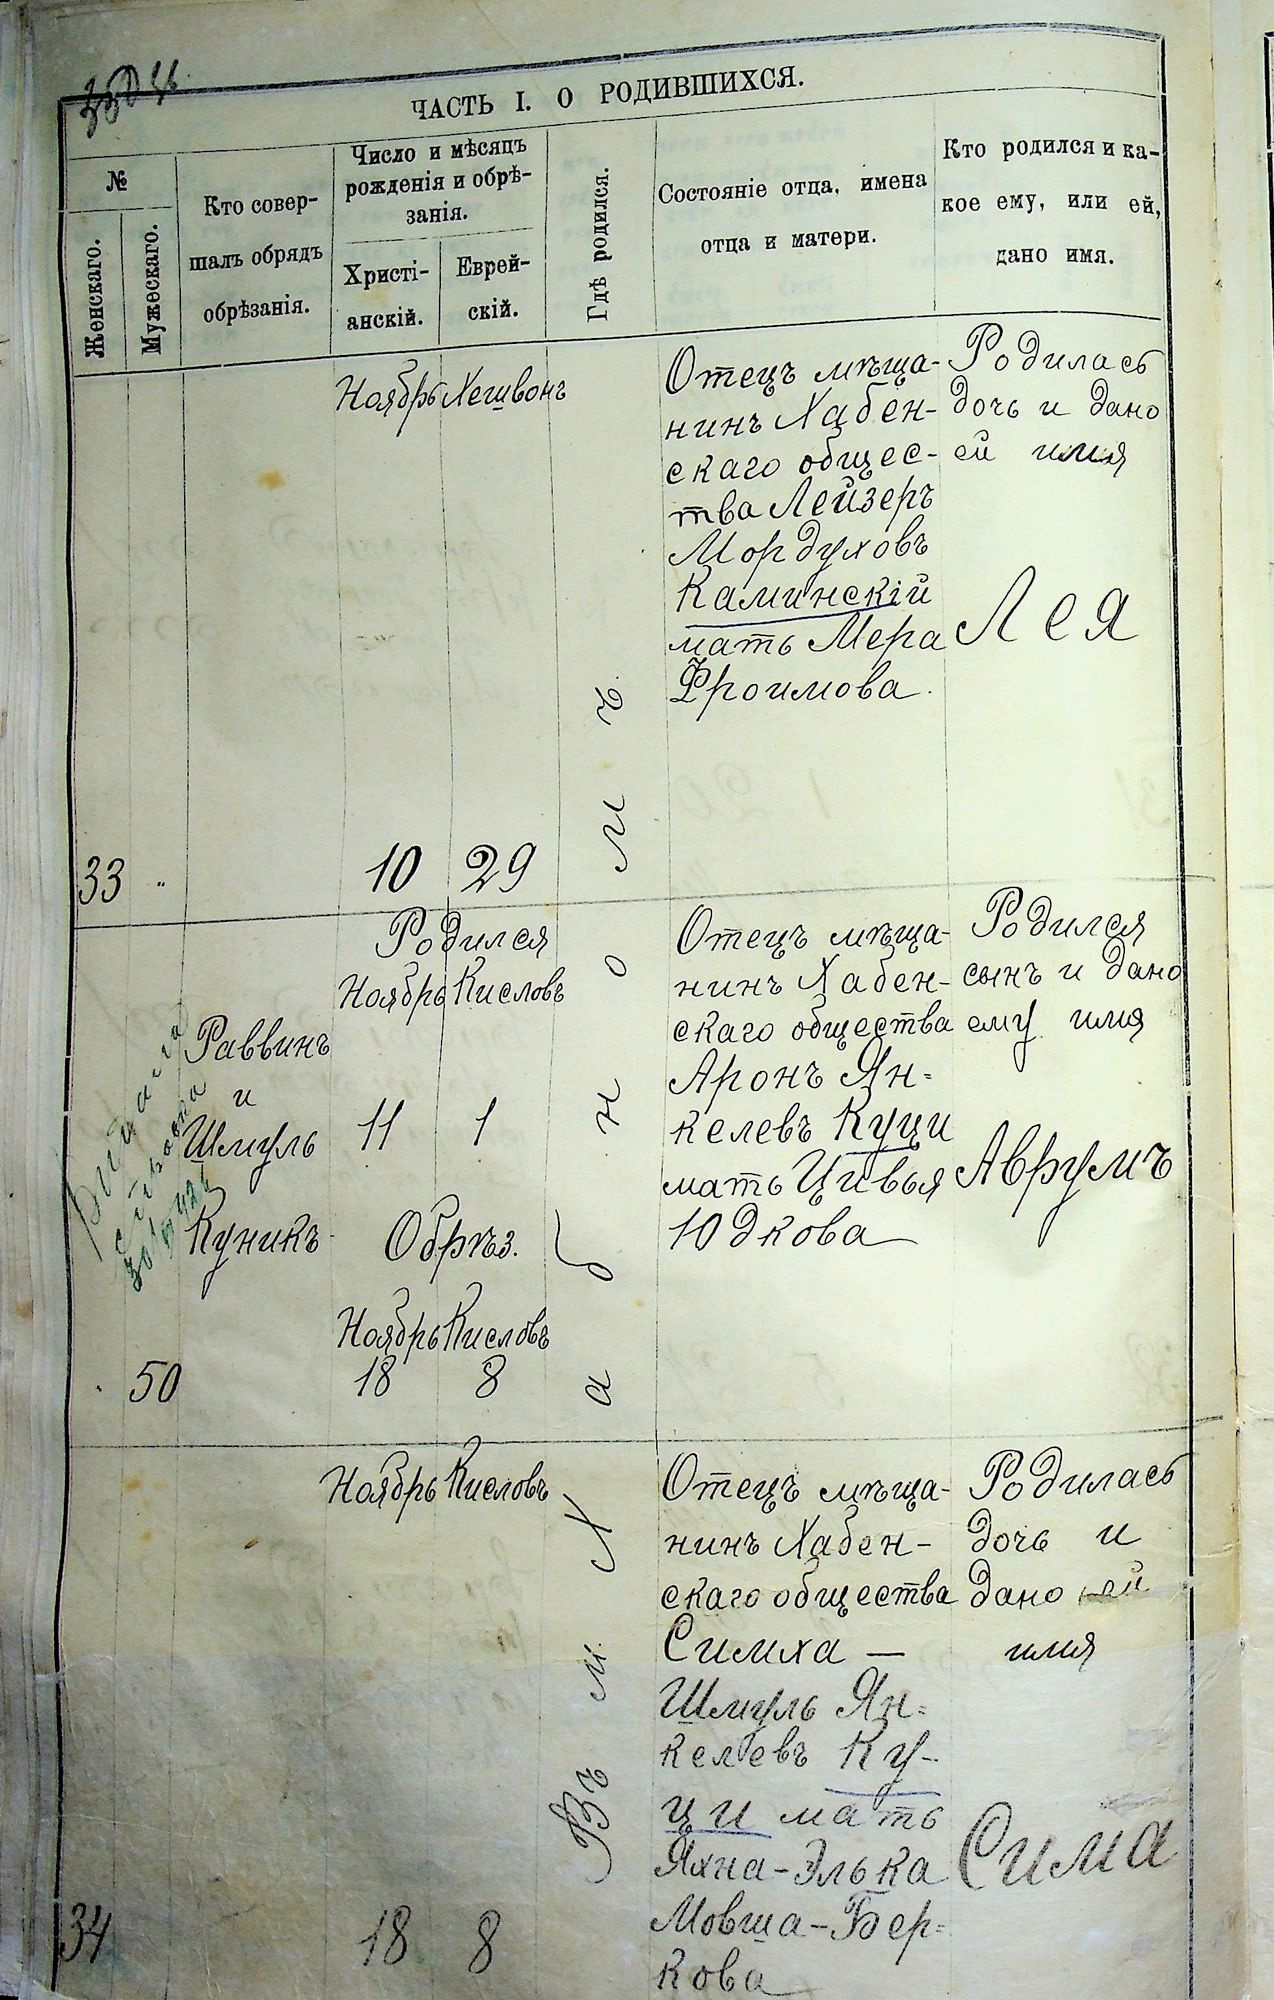 ЧАСТЬ I. О РОДИВШИХСЯ.
№
Женскаго.
Мужескаго.
Кто совер-
шалъ обрядъ
обрѣзанія.
Число и мѣсяцъ
рожденія и обрѣ-
занія.
Христі-
анскій.
Еврей-
скій.
Гдѣ родился.
Состояніе отца, имена
отца и матери.
Кто родился и ка-
кое ему, или ей,
дано имя.
33
"
Ноябрь Хешвонъ
10 29
Отецъ мѣща-
нинъ Хабен-
скаго общес-
тва Лейзеръ
Мордуховъ
Каминскій
мать Мера
Фроимова.
Родилась
дочь и дано
ей имя
Лея
50
Раввинъ
и
Шмуль
Куникъ
Родился
Ноябрь Кисловъ
11 1
Обрѣз.
Ноябрь Кисловъ
18 8
Отецъ мѣща-
нинъ Хабен-
скаго общества
Аронъ Ян-
келевъ Куци
мать Цивья
Юдкова
Родился
сынъ и дано
ему имя
Аврумъ
34
Ноябрь Кисловъ
18 8
Въ м. Хабномъ
Отецъ мѣща-
нинъ Хабен-
скаго общества
Симха —
Шмуль Ян-
келевъ Ку-
ци мать
Яхна-Элька
Мовша-Бер-
кова
Родилась
дочь и
дано ей
имя
Сима